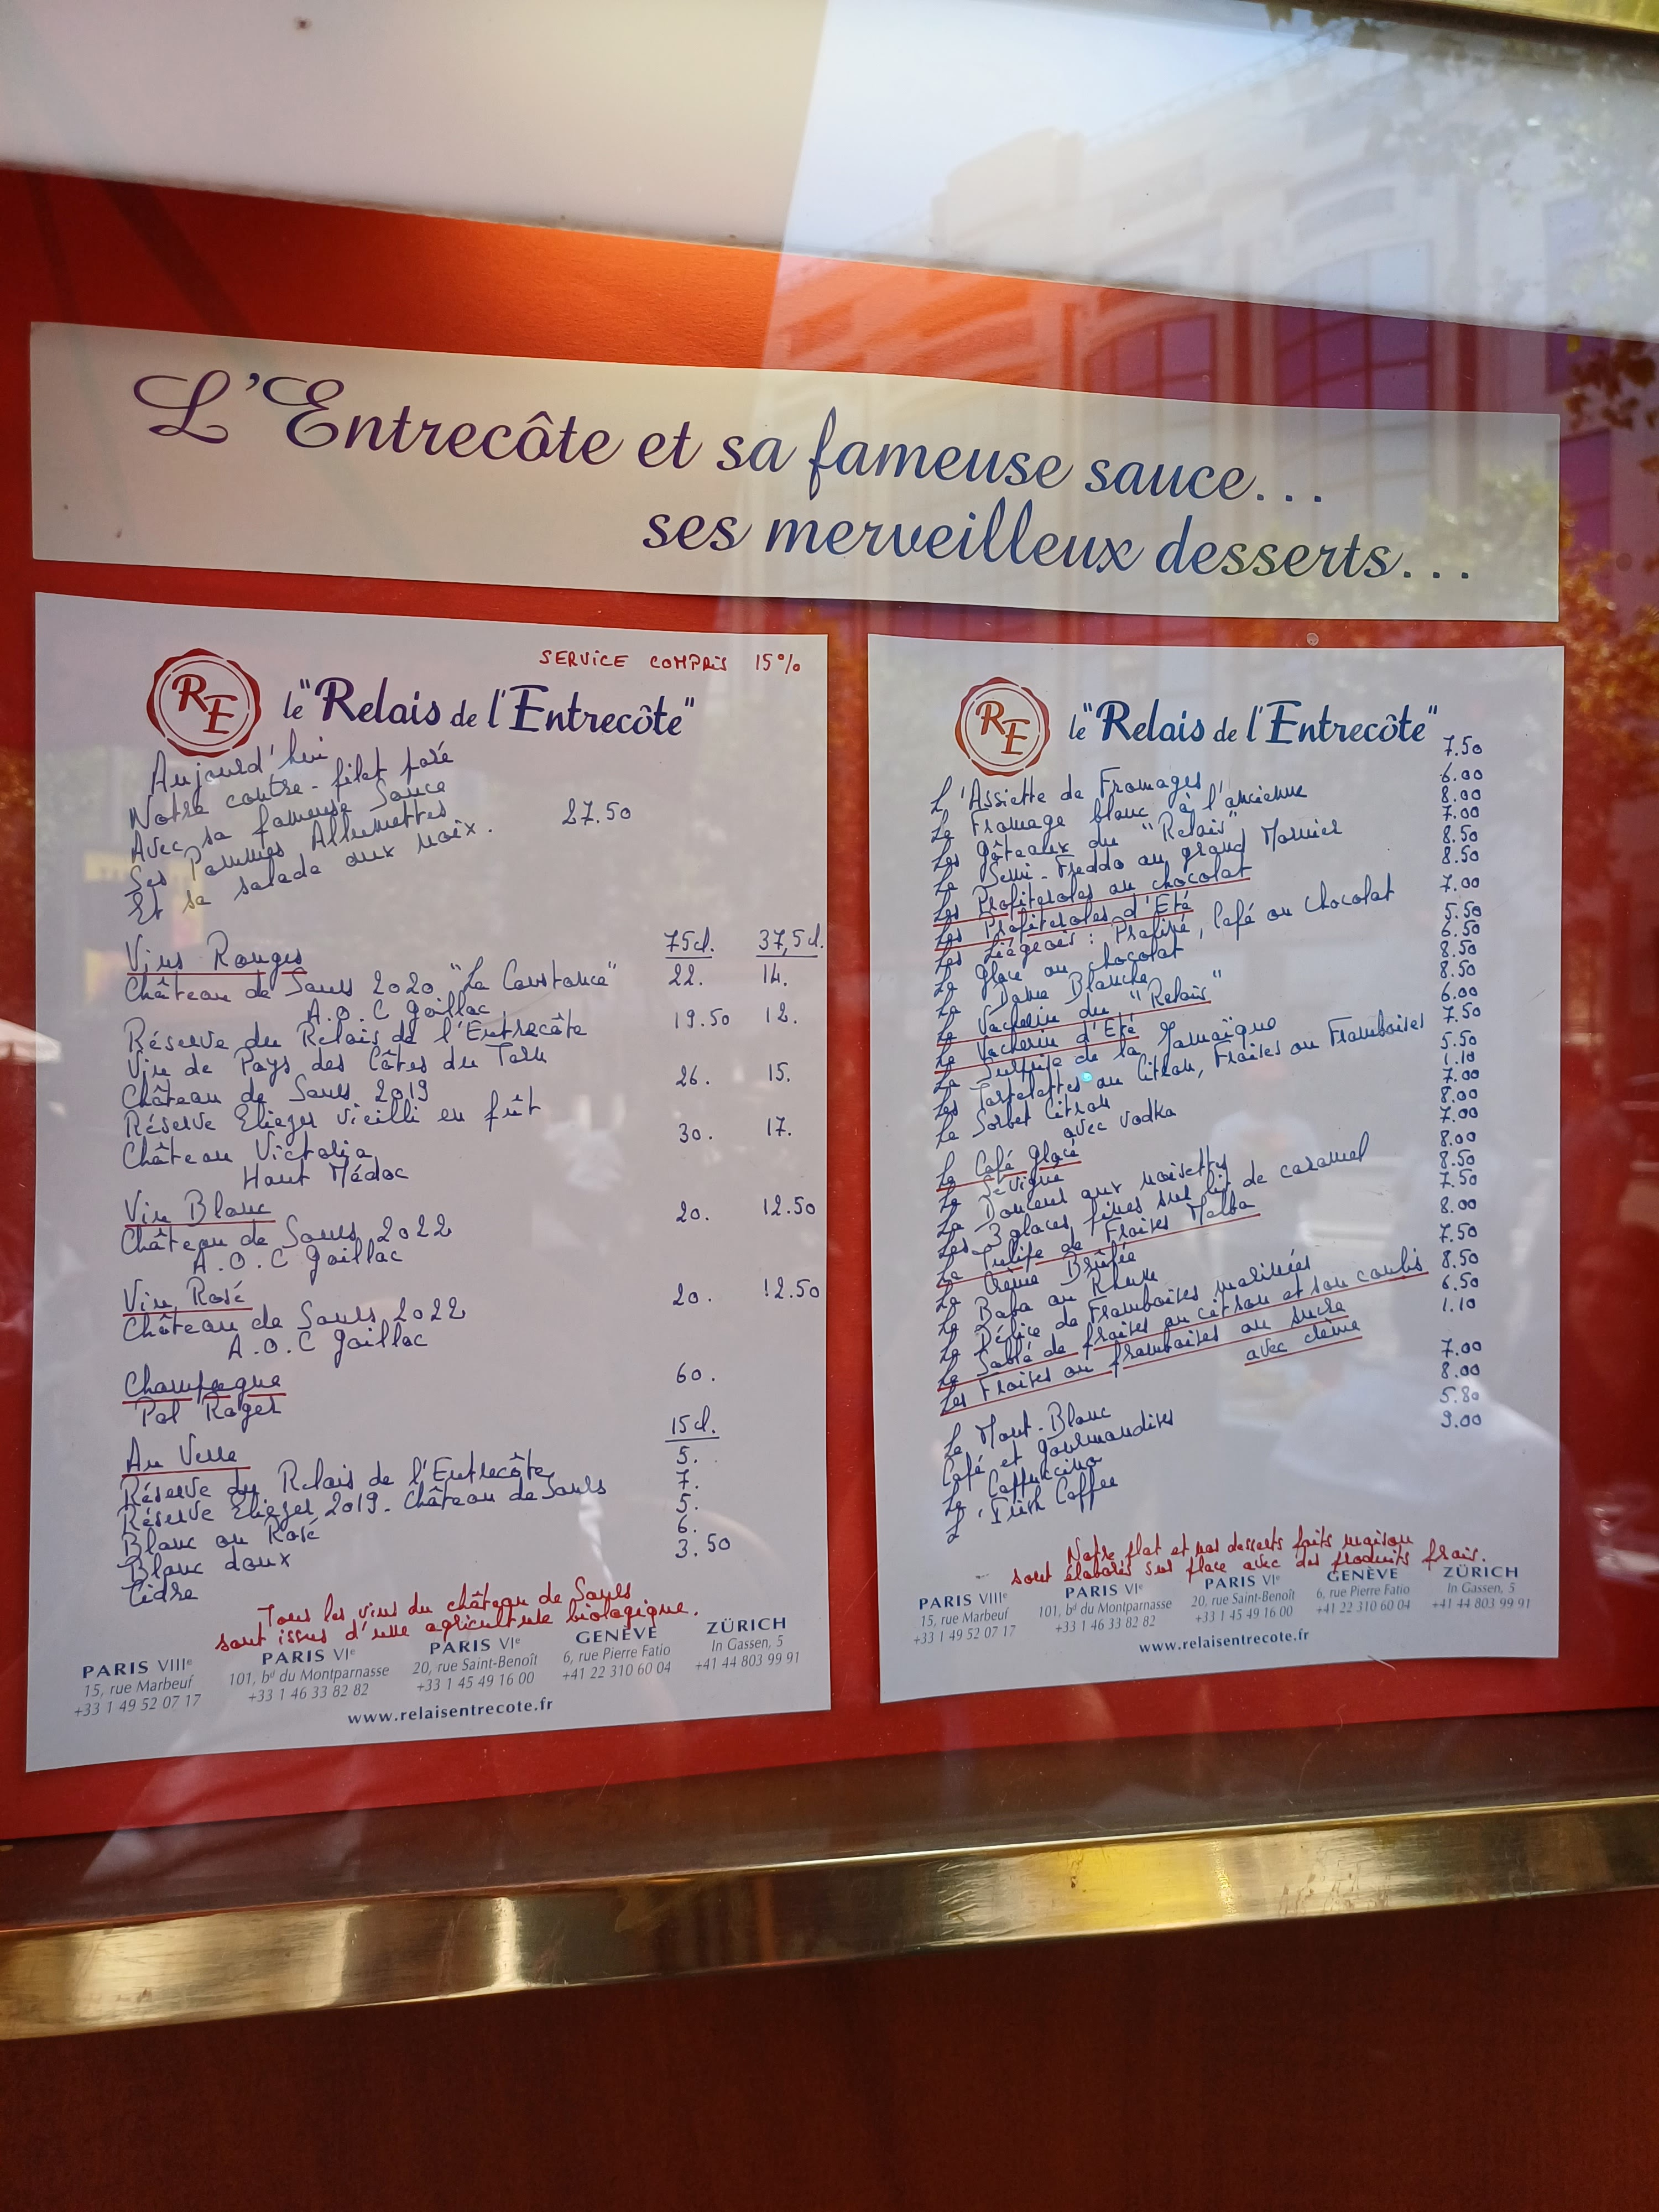 L'Entrecôte et sa fameuse sauce...
ses merveilleux desserts...
SERVICE COMPRIS 15%
RE
le "Relais de l'Entrecôte"
Aujourd'hui
Notre contre-filet paré
Avec sa fameuse Sauce
Ses Pommes Allumettes
Et sa salade aux noix.
27.50
Vins Rouges 75cl. 37,5cl.
Château de Saurs 2020 "La Constance" 22. 14.
A.O.C Gaillac
Réserve du Relais de l'Entrecôte 19.50 12.
Vin de Pays des Côtes du Tarn
Château de Saurs 2019 26. 15.
Réserve Eliezer vieilli en fût
Château Victoria 30. 17.
Haut Médoc
Vin Blanc
Château de Saurs 2022 20. 12.50
A.O.C Gaillac
Vin Rosé
Château de Saurs 2022 20. 12.50
A.O.C Gaillac
Champagne
Pol Roger 60.
Au Verre 15cl.
Réserve du Relais de l'Entrecôte 5.
Réserve Eliezer 2019. Château de Saurs 7.
Blanc ou Rosé 5.
Blanc doux 6.
Cidre 3.50
Tous les vins du château de Saurs
sont issus d'une agriculture biologique.
PARIS VIIIe PARIS VIe PARIS VIe GENÈVE ZÜRICH
15, rue Marbeuf 101, bd du Montparnasse 20, rue Saint-Benoît 6, rue Pierre Fatio In Gassen, 5
+33 1 49 52 07 17 +33 1 46 33 82 82 +33 1 45 49 16 00 +41 22 310 60 04 +41 44 803 99 91
www.relaisentrecote.fr
RE
le "Relais de l'Entrecôte"
L'Assiette de Fromages 7.50
Le Fromage blanc à l'ancienne 6.00
Les Gâteaux du "Relais" 8.00
Le Semi-Freddo au grand Marnier 7.00
Les Profiteroles au chocolat 8.50
Les Profiteroles d'Eté 8.50
Les Liégeois : Praliné, Café ou Chocolat 7.00
La Glace au chocolat 5.50
La Dame Blanche 6.50
Le Vacherin du "Relais" 8.50
Le Vacherin d'Eté 8.50
La Surprise de la Jamaïque 6.00
Les Tartelettes au Citron, Fraises ou Framboises 7.50
Le Sorbet Citron 5.50
avec vodka 1.10
Le Café Glacé 7.00
Le Sévigné 8.00
Le Douceur aux noisettes 7.00
Les 3 glaces fines sur lit de caramel 8.00
La Tulipe de Fraises Melba 8.50
La Crème Brûlée 7.50
Le Baba au Rhum 8.00
Le Délice de Framboises marinées 7.50
Le Sablé de fraises au citron et son coulis 8.50
Les Fraises ou framboises au sucre 6.50
avec crème 1.10
Le Mont-Blanc 7.00
Café et gourmandises 8.00
Le Cappuccino 5.80
L'Irish Coffee 9.00
Notre plat et nos desserts faits maison
sont élaborés sur place avec des produits frais.
PARIS VIIIe PARIS VIe PARIS VIe GENÈVE ZÜRICH
15, rue Marbeuf 101, bd du Montparnasse 20, rue Saint-Benoît 6, rue Pierre Fatio In Gassen, 5
+33 1 49 52 07 17 +33 1 46 33 82 82 +33 1 45 49 16 00 +41 22 310 60 04 +41 44 803 99 91
www.relaisentrecote.fr